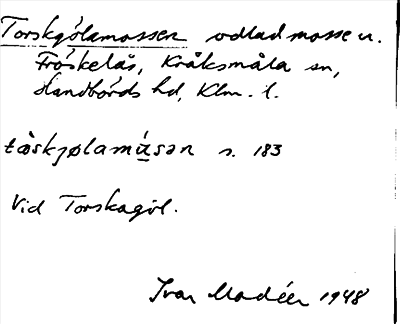 Torskgölamossen odlad mosse u.
Fröskelås, Kråksmåla sn,
Handbörds hd, Klm. l.
tɑ̀skjølamɑ́sən s. 183
Vid Torskagöl.
Ivar Modéer 1948